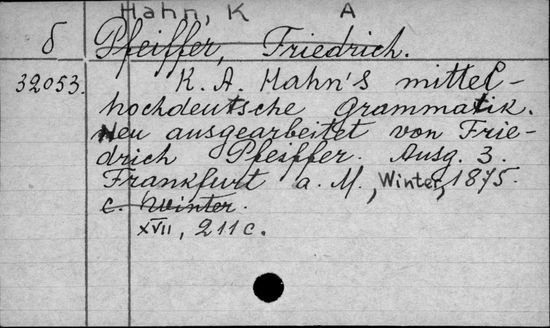 Hahn, K A
δ Pfeiffer, Friedrich.
32053. K. A. Hahn's mittel-
hochdeutsche Grammatik.
Neu ausgearbeitet von Frie-
drich Pfeiffer. Ausg. 3.
Frankfurt a. M., Winter, 1875.
C. Winter.
XVII, 211 c.